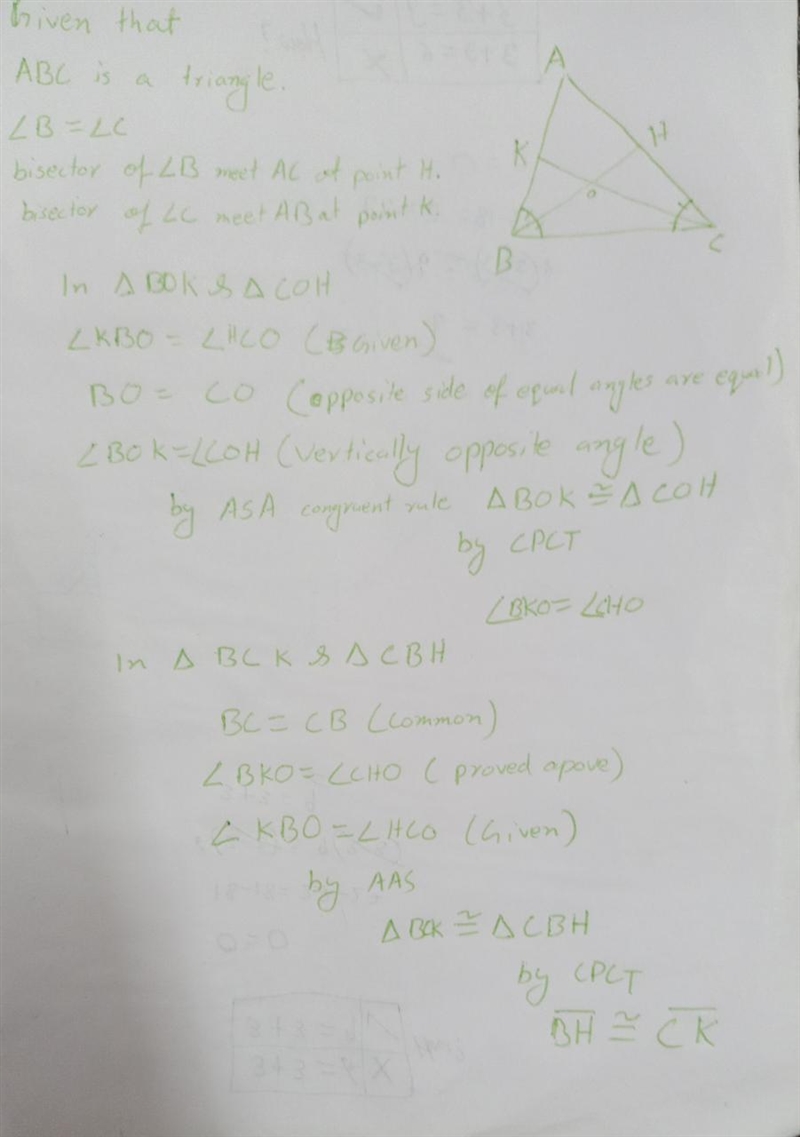 Given that
ABC is a triangle.
∠B = ∠C
bisector of ∠B meet AC at point H.
bisector of ∠C meet AB at point K.
A
K
H
o
B
C
In △ BOK & △ COH
∠KBO = ∠HCO (Given)
BO = CO (opposite side of equal angles are equal)
∠BOK = ∠COH (vertically opposite angle)
by ASA congruent rule △BOK ≅ △COH
by CPCT
∠BKO = ∠CHO
In △ BCK & △ CBH
BC = CB (common)
∠BKO = ∠CHO (proved apove)
∠ KBO = ∠HCO (Given)
by AAS
△BCK ≅ △CBH
by CPCT
B̅H̅ ≅ C̅K̅